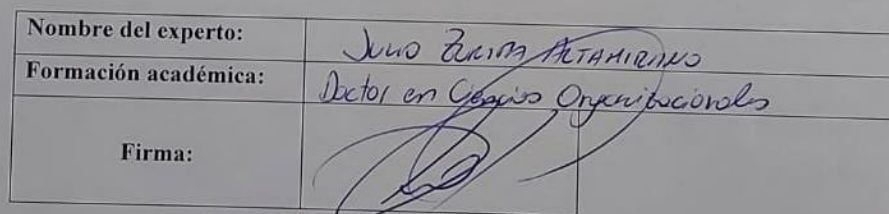 Nombre del experto: Julio Zurita Altamirano
Formación académica: Doctor en Ciencias Organizacionales
Firma: